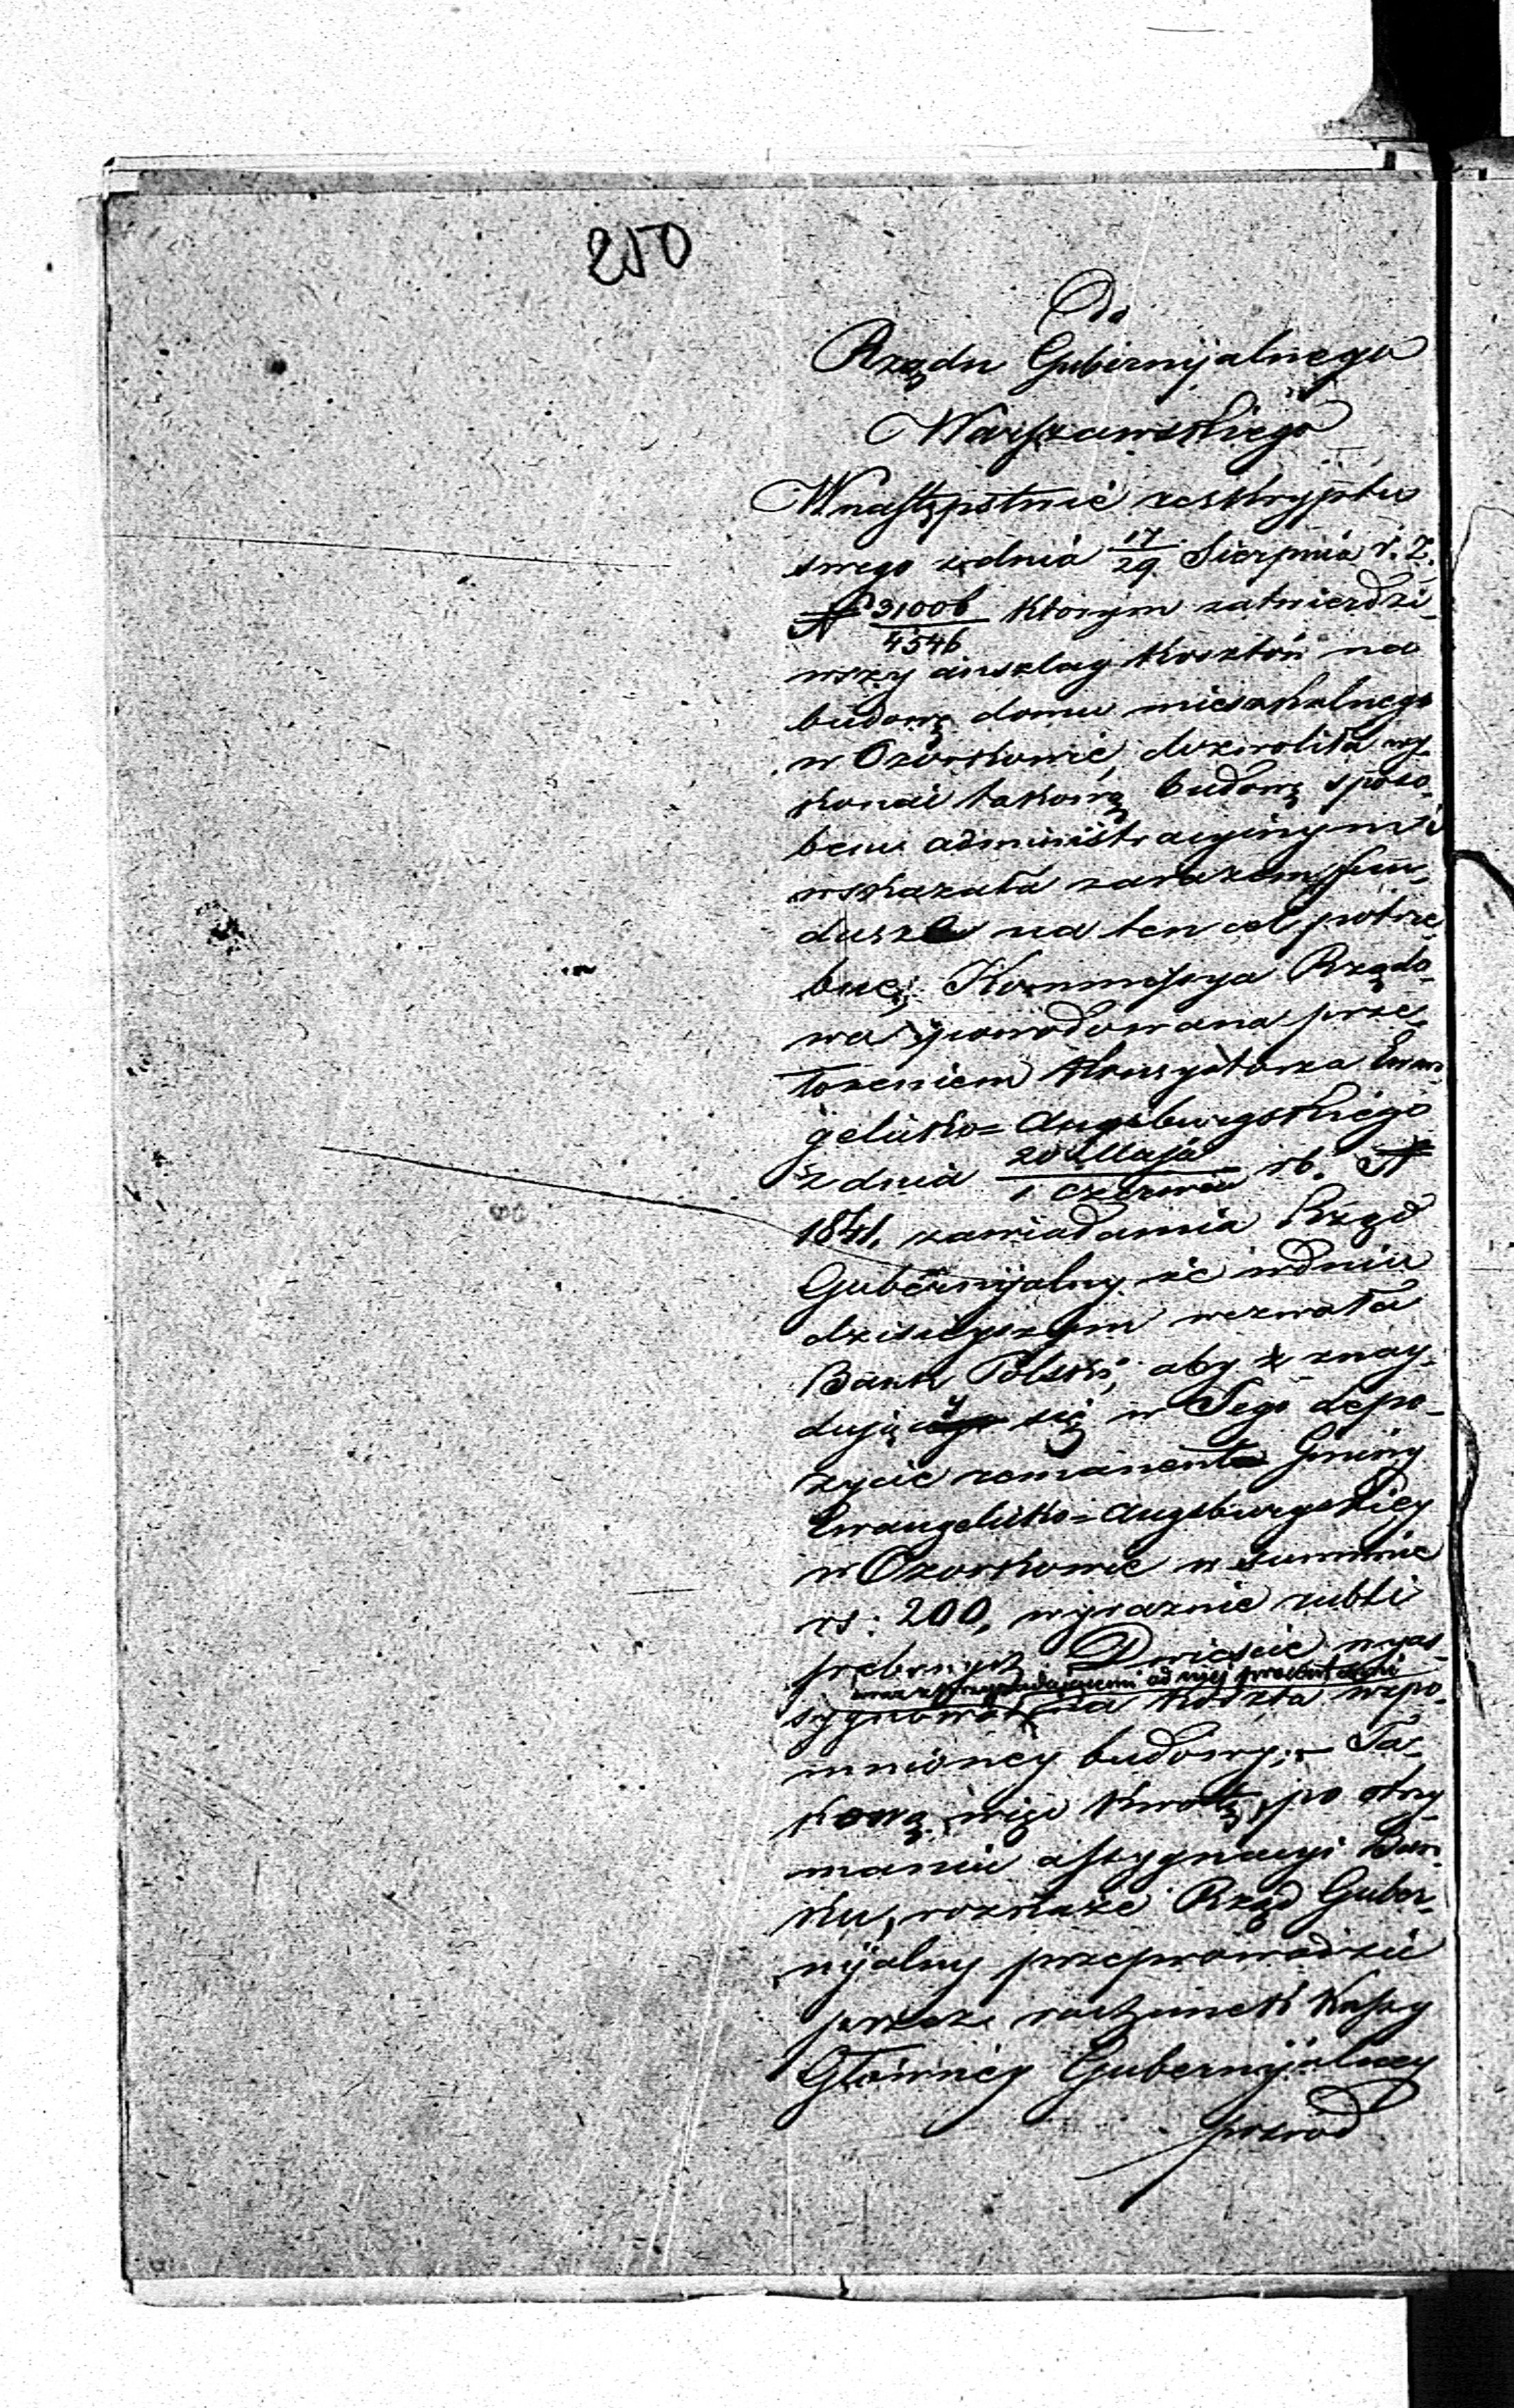 250
Do
Rządu Gubernijalnego
Warszawskiego
W następstwie reskryptu
swego z dnia 17/29 Sierpnia r. z.
N 31006/4546 którym zatwierdzi-
wszy anszlag kosztów na
budowę domu mieszkalnego
w Ozorkowie, dozwoliła wy-
konać takową budowę sposo-
bem administracyinym i
wskazała zarazem fun-
dusze na ten cel potrze-
bne; Kommissya Rządo-
wa spowodowana prze-
łożeniem Konsystorza Ewan-
gelicko=Augsburgskiego
z dnia 20 Maja/1 Czerwca rb. N
1841, zawiadamia Rząd
Gubernijalny że w dniu
dzisieyszym wezwała
Bank Polski, aby znay-
dujący się w Jego depo-
zycie remanent Gminy
Ewangelicko=Augsburgskiey
w Ozorkowie w summie
rs: 200, wyraźnie rubli
srebrnych Dwieście wyas-
wraz z przypadającemi od niej procentami
sygnował na koszta wspo-
mnioney budowy. – Ta-
kową więc kwotę, po otrzy-
maniu assygnacyi Ban-
ku, rozkaże Rząd Guber-
nijalny przeprowadzić
przez rachunek Kassy
Główney Gubernijalney